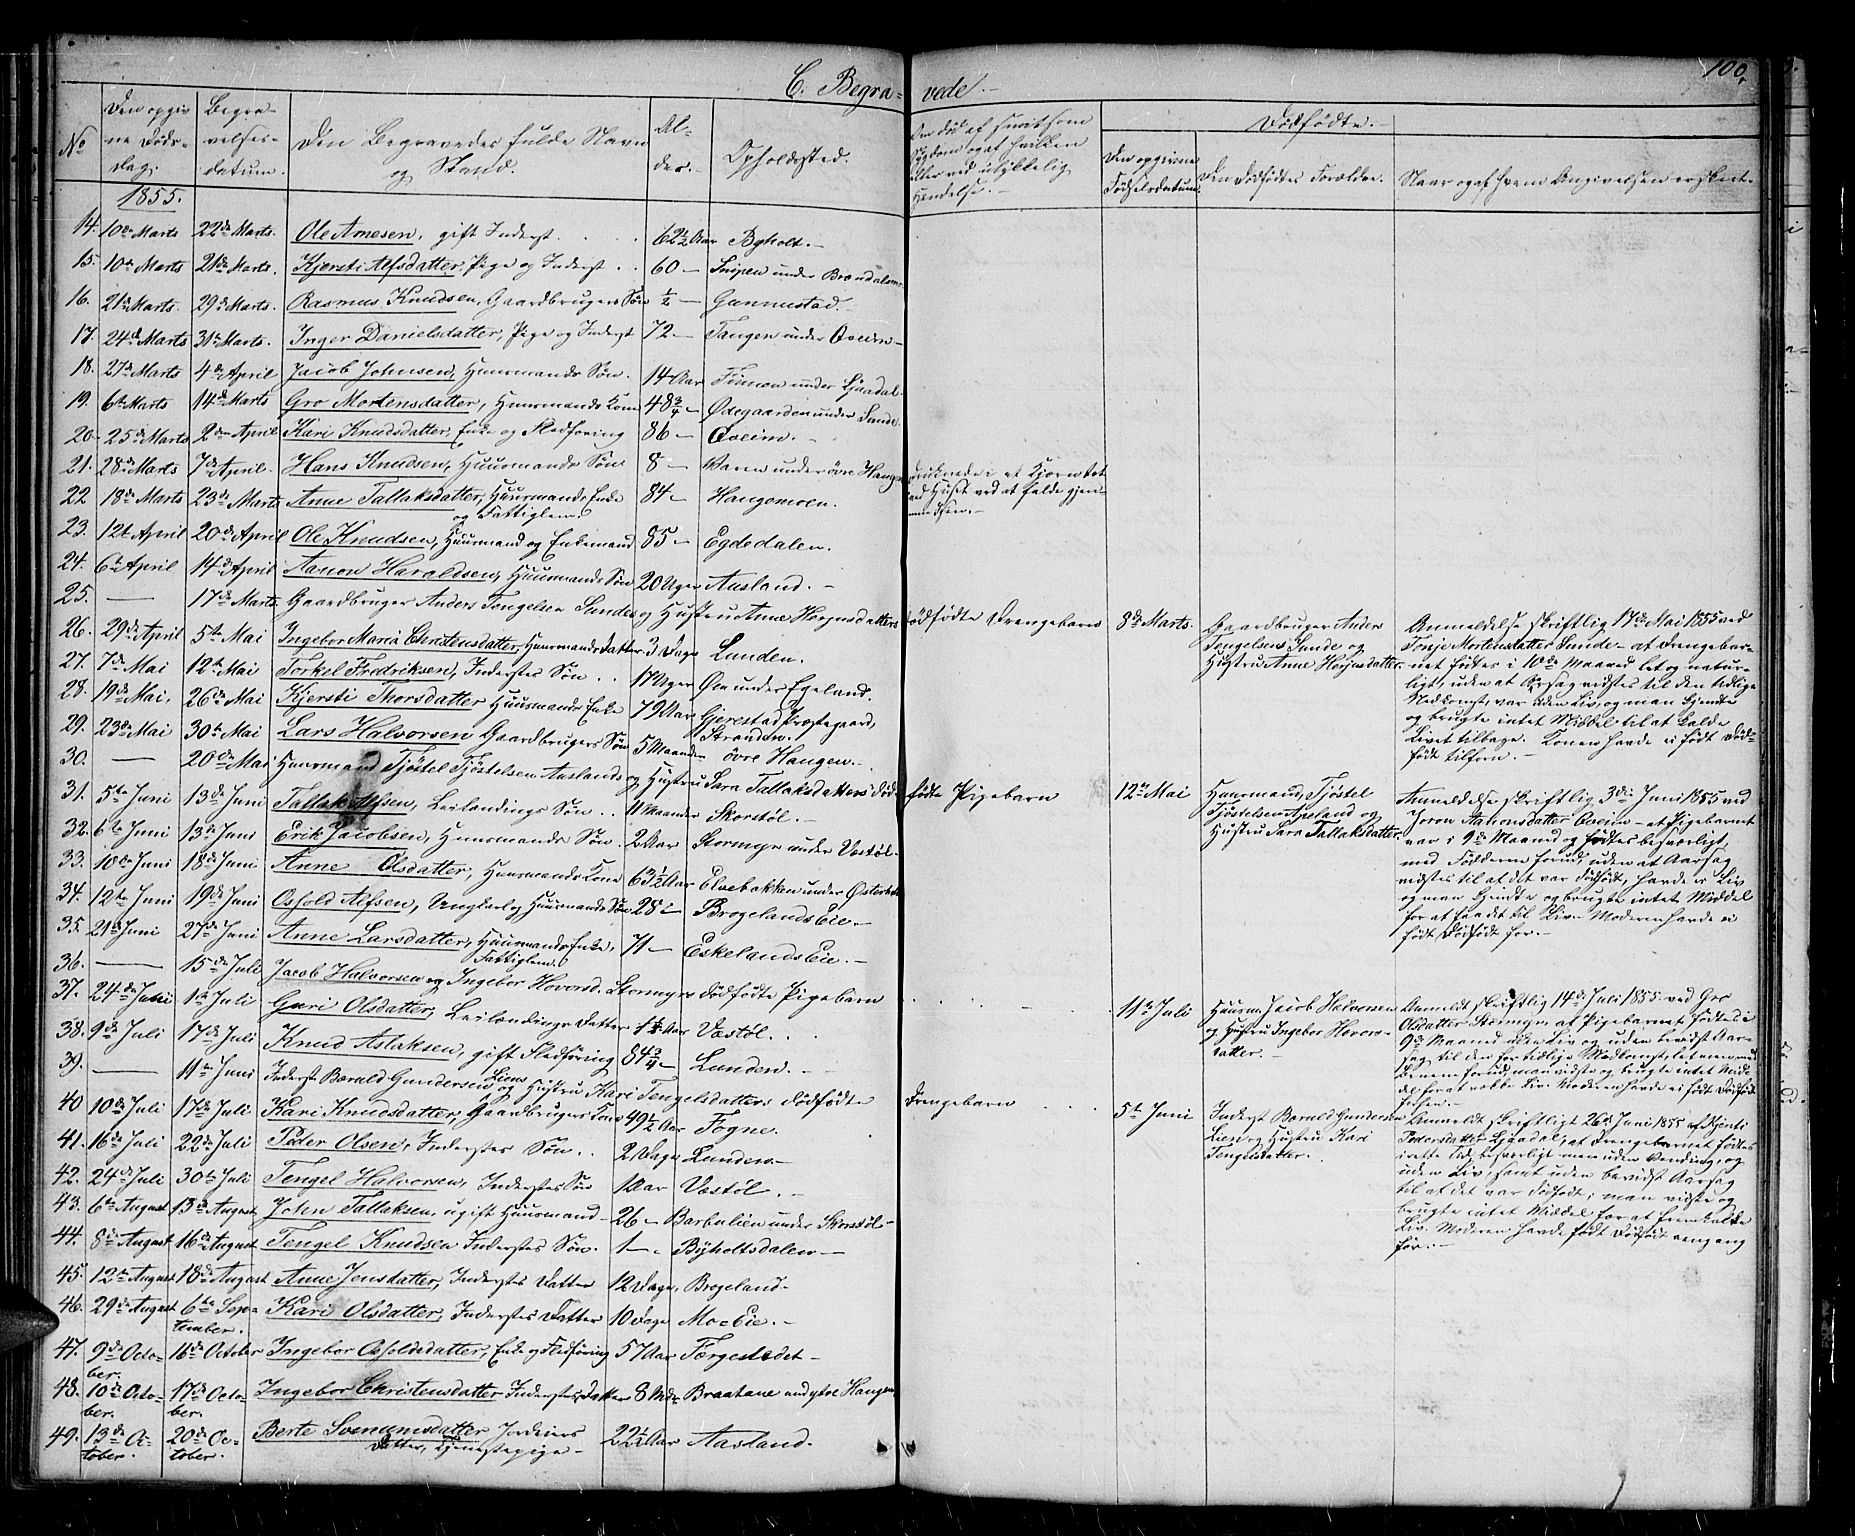 C. Begra-
vede.
100.
No
Den opgiv
ne Døds-
dag.
Begra-
velses-
datum.
Den Begravedes fulde Navn
og Stand.
Al-
der.
Opholdssted.
Dødfødte.
Den opgivne
Fødselsdatum.
Den Dødfødtes Forældre.
Naar og af hvem Angivelsen er skeet.
1855.
14. 10de Marts 22de Marts. Ole Arnesen, gift Inderst 62½ Aar Byholt.
15. 10de Marts 21de Marts. Kjersti Alfsdatter, Pige og Inderst 60 — Snipen under
16. 21de Marts 29de Marts. Rasmus Knudsen, Gaardbrugers Søn ½ — Gunnustad.
17. 24de Marts 31te Marts. Inger Danielsdatter, Pige og Inderst 72 — Tangen under Qveim
18. 27de Marts 4de April Jacob Johnsen, Huusmands Søn. 14 Aar under Ljaadal.
19. 6te Marts 14de Marts Gro Mortensdatter, Huusmands Kone 48¾ — Ødegaarden under Sunde.
20. 25de Marts 2den April Kari Knudsdatter, Enke og Fledføring 86 — Qveim.
21. 28de Marts 7de April. Hans Knudsen, Huusmands Søn 8 — under øvre Haugen druknede i et Kjærn tæt
ved Huset ved at falde gjen-
nem Isen.
22. 18de Marts 23de Marts Anne Tallaksdatter, Huusmands Enke
og Fattiglem 84 — Haugemoen.
23. 12te April 20de April Ole Knudsen, Huusmand og Enkemand 85 — Egdedalen.
24. 6te April 14de April Aanon Haroldsen, Huusmands Søn 20 Uger Ausland.
25. — 17de Marts Gaardbruger Anders Tengelsen Sundes og Hustru Anne Hergusdatters dødfødte Drengebarn 8de Marts.
Gaardbruger Anders
Tengelsen Sunde og
Hustru Anne Hergusdatter
Anmeldelse skriftlig 17de Mai 1855 ved
Tonje Mortensdatter Sunde — at Drengebar-
net fødtes i 10de Maaned let og natur-
ligt, uden at Aarsag vidstes til den tidlige
Nedkomst, var uden Liv, og man kjendte
og brugte intet Middel til at kalde
Livet tilbage. Konen havde ei født Død-
født tilforn.
26. 29de April 5te Mai Ingebor Maria Christensdatter, Huusmands Datter 3 Dage Lunden.
27. 7de Mai 12te Mai Torkel Fredriksen, Inderstes Søn 17 Uger Øen under Egeland.
28. 19de Mai, 26de Mai Kjersti Thorsdatter Huusmands Enke 79 Aar Gjerestad Præstegaard,
Stranden.
29. 23de Mai 30te Mai Lars Halvorsen Gaardbrugers Søn 5 Maaneder øvre Haugen.
30. — 20de Mai Huusmand Tjøstel Tjøstelsen Auslands og Hustru Sara Tallaksdatters død-
fødte Pigebarn 12te Mai
Huusmand Tjøstel
Tjøstelsen Apeland og
Hustru Sara Tallaksdatter.
Anmeldelse skriftlig 3die Juni 1855 ved
Joron Aanonsdatter Qveim — at Pigebarnet
var i 9de Maaned og fødtes besværligt,
med Fødderne forud, uden at Aarsag
vidstes til at det var dødfødt, havde ei Liv
og man kjendte og brugte intet Middel
for at faa det til Liv. Moderen havde ei
født Dødfødt før.
31. 5te Juni 13de Juni Tallak Alfsen, Leilændings Søn 11 Maaneder Skorstøl.
32. 6te Juni 13de Juni Erik Jacobsen, Huusmands Søn 2 Aar Stormyr under Vestøl.
33. 10de Juni 18de Juni Anne Olsdatter, Huusmands Kone 63½ Aar Elvebakken under Østerholt
34. 12te Juni 19de Juni Osfold Alfsen, Ungkarl og Huusmands Søn 28 — Brogelands Eie.
35. 21de Juni 27de Juni Anne Larsdatter, Huusmands Enke,
Fattiglem 71 — Eskelands Eie.
36. — 15de Juli Jacob Halvorsen og Ingebor Hovorsd. Stormyrs dødfødte Pigebarn
11te Juli
Huusm. Jacob Halvorsen
og Hustru Ingebor Hovors-
datter.
Anmeldt skriftlig 14de Juli 1855 ved Gro
Olsdatter Stormyr, at Pigebarnet fødtes i
9de Maaned uden Liv og uden bevidst Aar-
sag til den fortidlige Nedkomst, let men med
Benene forud, man vidste og brugte intet Mid-
del for at vække Liv. Moderen havde ei født Dødfødt
37. 24de Juni 1ste Juli Guri Olsdatter, Leilændings Datter Aar Vestøl.
38. 9de Juli 17de Juli Knud Aslaksen, gift Fledføring 84¾ — Lunden.
39. — 11te Juni Inderst Barald Gundersen Liens og Hustru Kari Tengelsdatters dødfødte
Drengebarn 5te Juni
Inderst Barald Gundersen
Lien og Hustru Kari
Tengelsdatter.
Anmeldt skriftligt 26de Juni 1855 af Kjersti
Pedersdatter Ljaadal, at Drengebarnet fødtes
i rette Tid besværligt men uden Vending, og
uden Liv, samt uden bevidst Aarsag
til at det var dødfødt; man vidste og
brugte intet Middel for at fremkalde
Liv. Moderen havde født Dødfødt en gang
før.
40. 10de Juli 17de Juli Kari Knudsdatter, Gaardbrugers Kone 49½ Aar Fogne.
41. 16de Juli 22de Juli Peder Olsen, Inderstes Søn 2 Dage Lunden.
42. 24de Juli 30te Juli Tengel Halvorsen, Inderstes Søn 1 Aar Vestøl.
43. 6te August 13de August John Tallaksen, ugift Huusmand 26 — Barbulien under Skorstøl
44. 8de August 16de August Tengel Knudsen Inderstes Søn. 1 — Byholtsdalen
45. 12te August 18de August Anne Jensdatter, Inderstes Datter 12 Dage Brogeland
46. 29de August 6te Sep-
tember. Kari Olsdatter, Inderstes Datter 10 Dage Mo=Eie.
47. 9de Octo-
ber. 16de October Ingebor Osfoldsdatter, Enke og Fledføring 57 Aar Færgestedet
48. 10de Octo-
ber. 17de Octo-
ber. Ingebor Christensdatter Inderstes Datter 8 Mdr Braatane und. øvre Haugen
49. 13de Oc-
tober. 20de Oc-
tober. Berte Svenumsdatter, Jordeiers
Datter, Tjenestepige 22½ Aar Aasland.